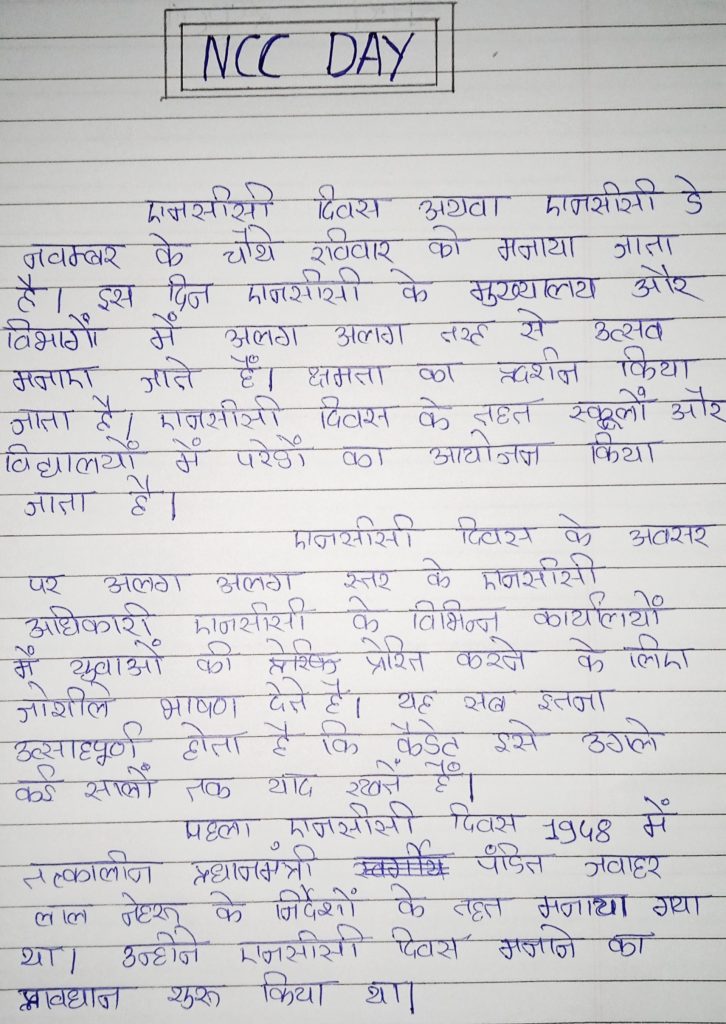 NCC DAY
एनसीसी दिवस अथवा एनसीसी डे
नवम्बर के चौथे रविवार को मनाया जाता
है। इस दिन एनसीसी के मुख्यालय और
विभागों में अलग अलग तरह से उत्सव
मनाए जाते हैं। क्षमता का प्रदर्शन किया
जाता है। एनसीसी दिवस के तहत स्कूलों और
विद्यालयों में परेडों का आयोजन किया
जाता है।
एनसीसी दिवस के अवसर
पर अलग अलग स्तर के एनसीसी
अधिकारी एनसीसी के विभिन्न कार्यालयों
में युवाओं की प्रेरित करने के लिए
जोशीले भाषण देते है। यह सब इतना
उत्साहपूर्ण होता है कि कैडेट इसे उगले
कई सालों तक याद रखतें हैं।
पहला एनसीसी दिवस 1948 में
तत्कालीन प्रधानमंत्री स्वर्गीय पंडित जवाहर
लाल नेहरू के निर्देशों के तहत मनाया गया
था। उन्होने एनसीसी दिवस मनाने का
प्रावधान शुरू किया था।